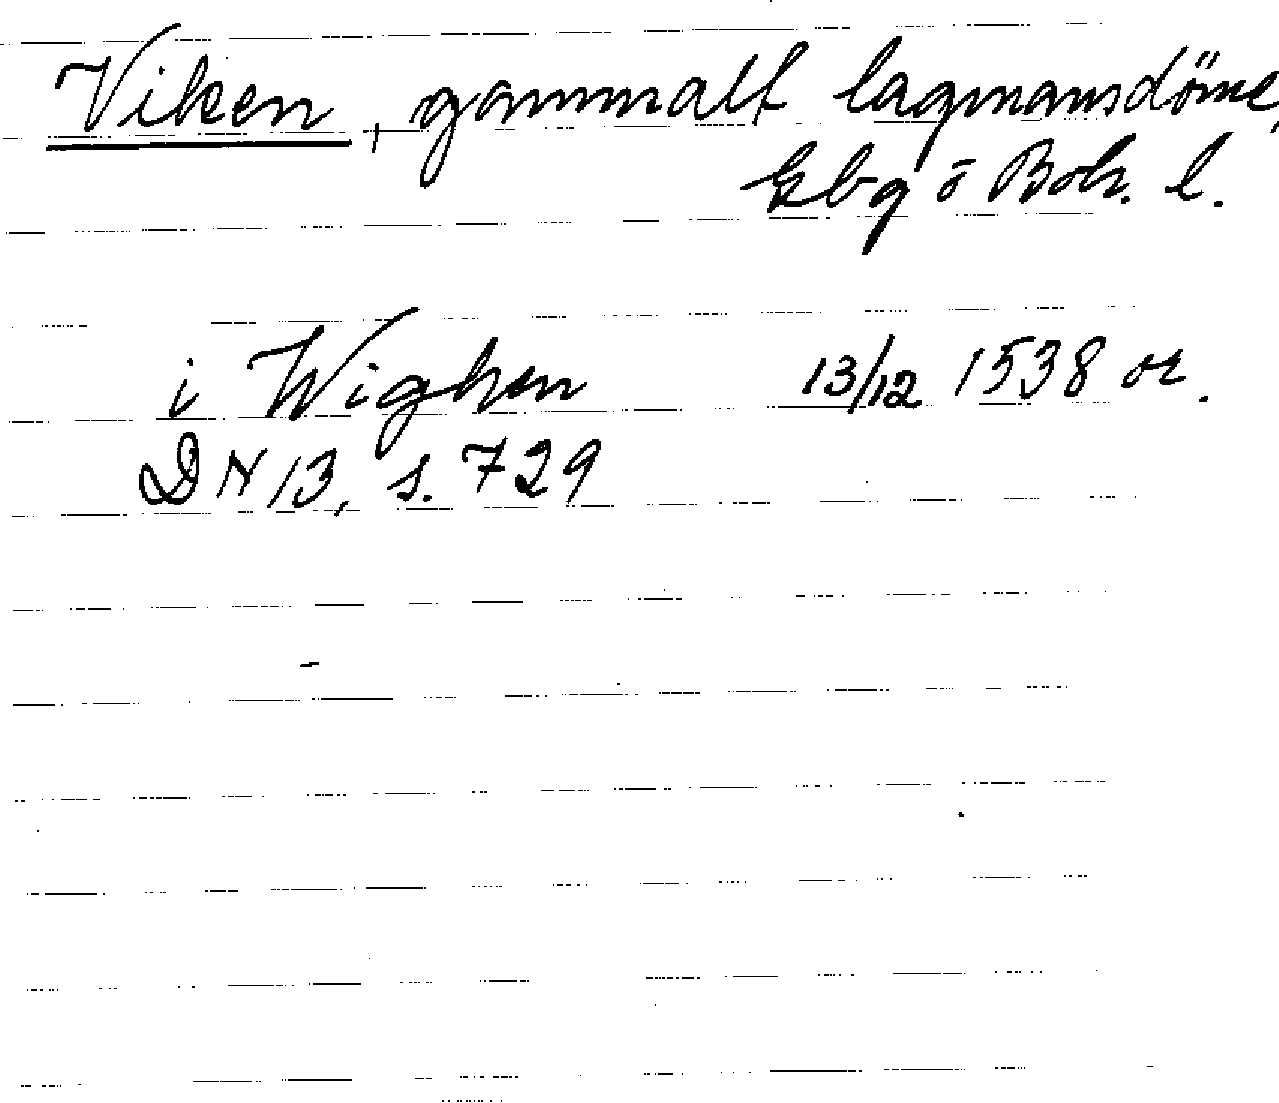 Viken, gammalt lagmansdöme,
Gbg o Boh. l.
i Wighen 13/12 1538 or.
DN 13, s. 729